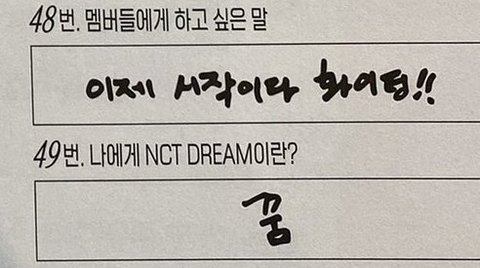 48번. 멤버들에게 하고 싶은 말
이제 시작이다 화이팅!!
49번. 나에게 NCT DREAM이란?
꿈